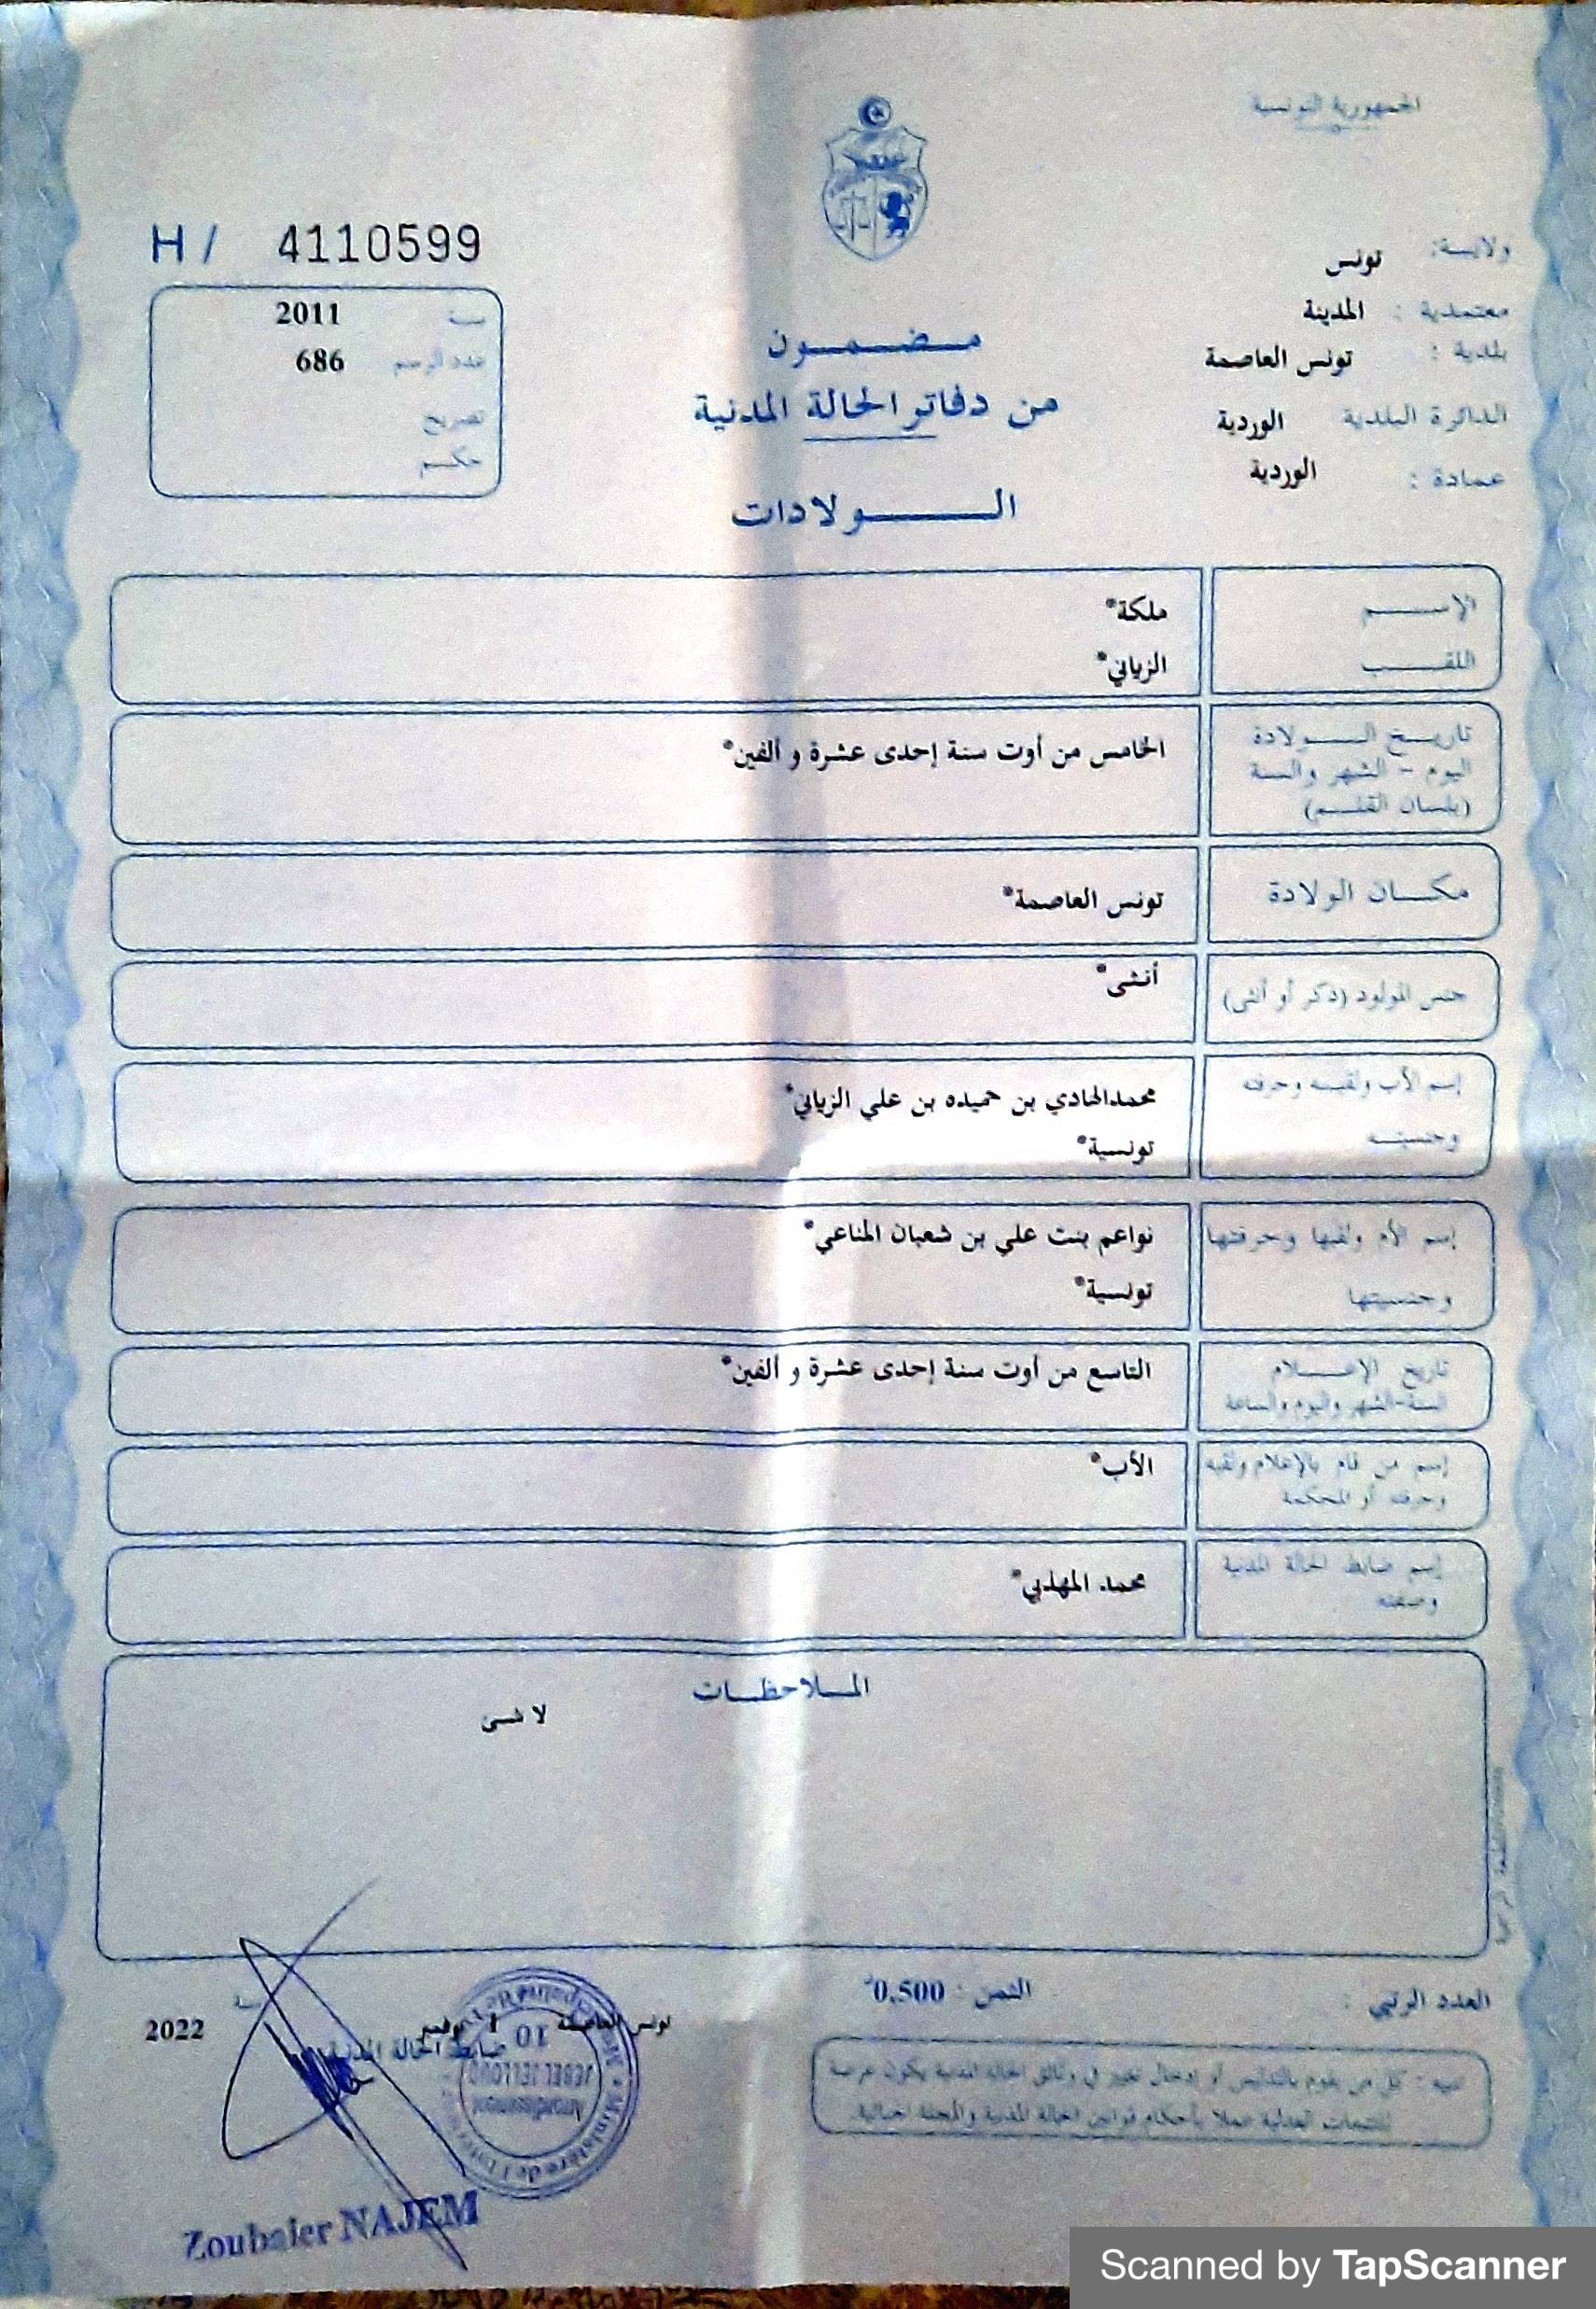 الجمهورية التونسية
ولاية: تونس
معتمدية : المدينة
بلدية : تونس العاصمة
الدائرة البلدية الوردية
عمادة : الوردية
H / 4110599
سنة 2011
عدد الرسم 686
تصريح
حكم
مضمون
من دفاتر الحالة المدنية
الولادات
الإسم ملكة*
اللقب الزياني*
تاريخ الولادة
اليوم - الشهر والسنة
(بلسان القلم)
الخامس من أوت سنة إحدى عشرة و ألفين*
مكان الولادة تونس العاصمة*
جنس المولود (ذكر أو أنثى) أنثى*
إسم الأب ولقبه وحرفته
وجنسيته
محمدالهادي بن حميده بن علي الزياني*
تونسية*
إسم الأم ولقبها وحرفتها
وجنسيتها
نواعم بنت علي بن شعبان المناعي*
تونسية*
تاريخ الإعلام
السنة-الشهر واليوم والساعة
التاسع من أوت سنة إحدى عشرة و ألفين*
إسم من قام بالإعلام ولقبه
وحرفته أو المحكمة
الأب*
إسم ضابط الحالة المدنية
وصفته
محمد المهذبي*
الملاحظات
لا شىء
العدد الرتبي :
الثمن : 0,500د
تونس العاصمة نوفمبر سنة 2022
ضابط الحالة المدنية
10
JEBEL JELLOUD
Arrondissement
Ministère de l'
Zoubaier NAJEM
تنبيه : كل من يقوم بالتدليس أو إدخال تغيير في وثائق الحالة المدنية يكون عرضة
للتتبعات العدلية عملا بأحكام قوانين الحالة المدنية والمجلة الجنائية.
Scanned by TapScanner